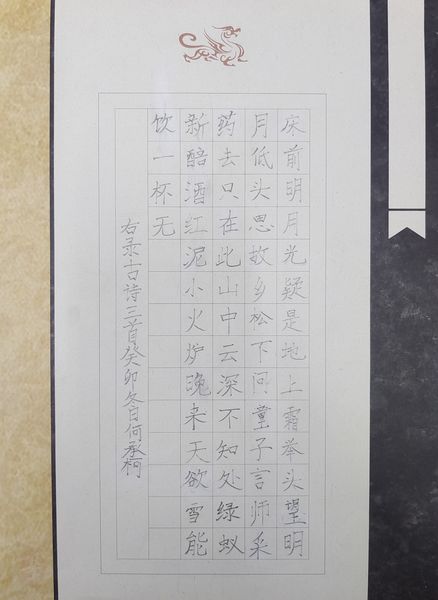 床前明月光疑是地上霜举头望明
月低头思故乡松下问童子言师采
药去只在此山中云深不知处绿蚁
新醅酒红泥小火炉晚来天欲雪能
饮一杯无
右录古诗三首癸卯冬日何承柯